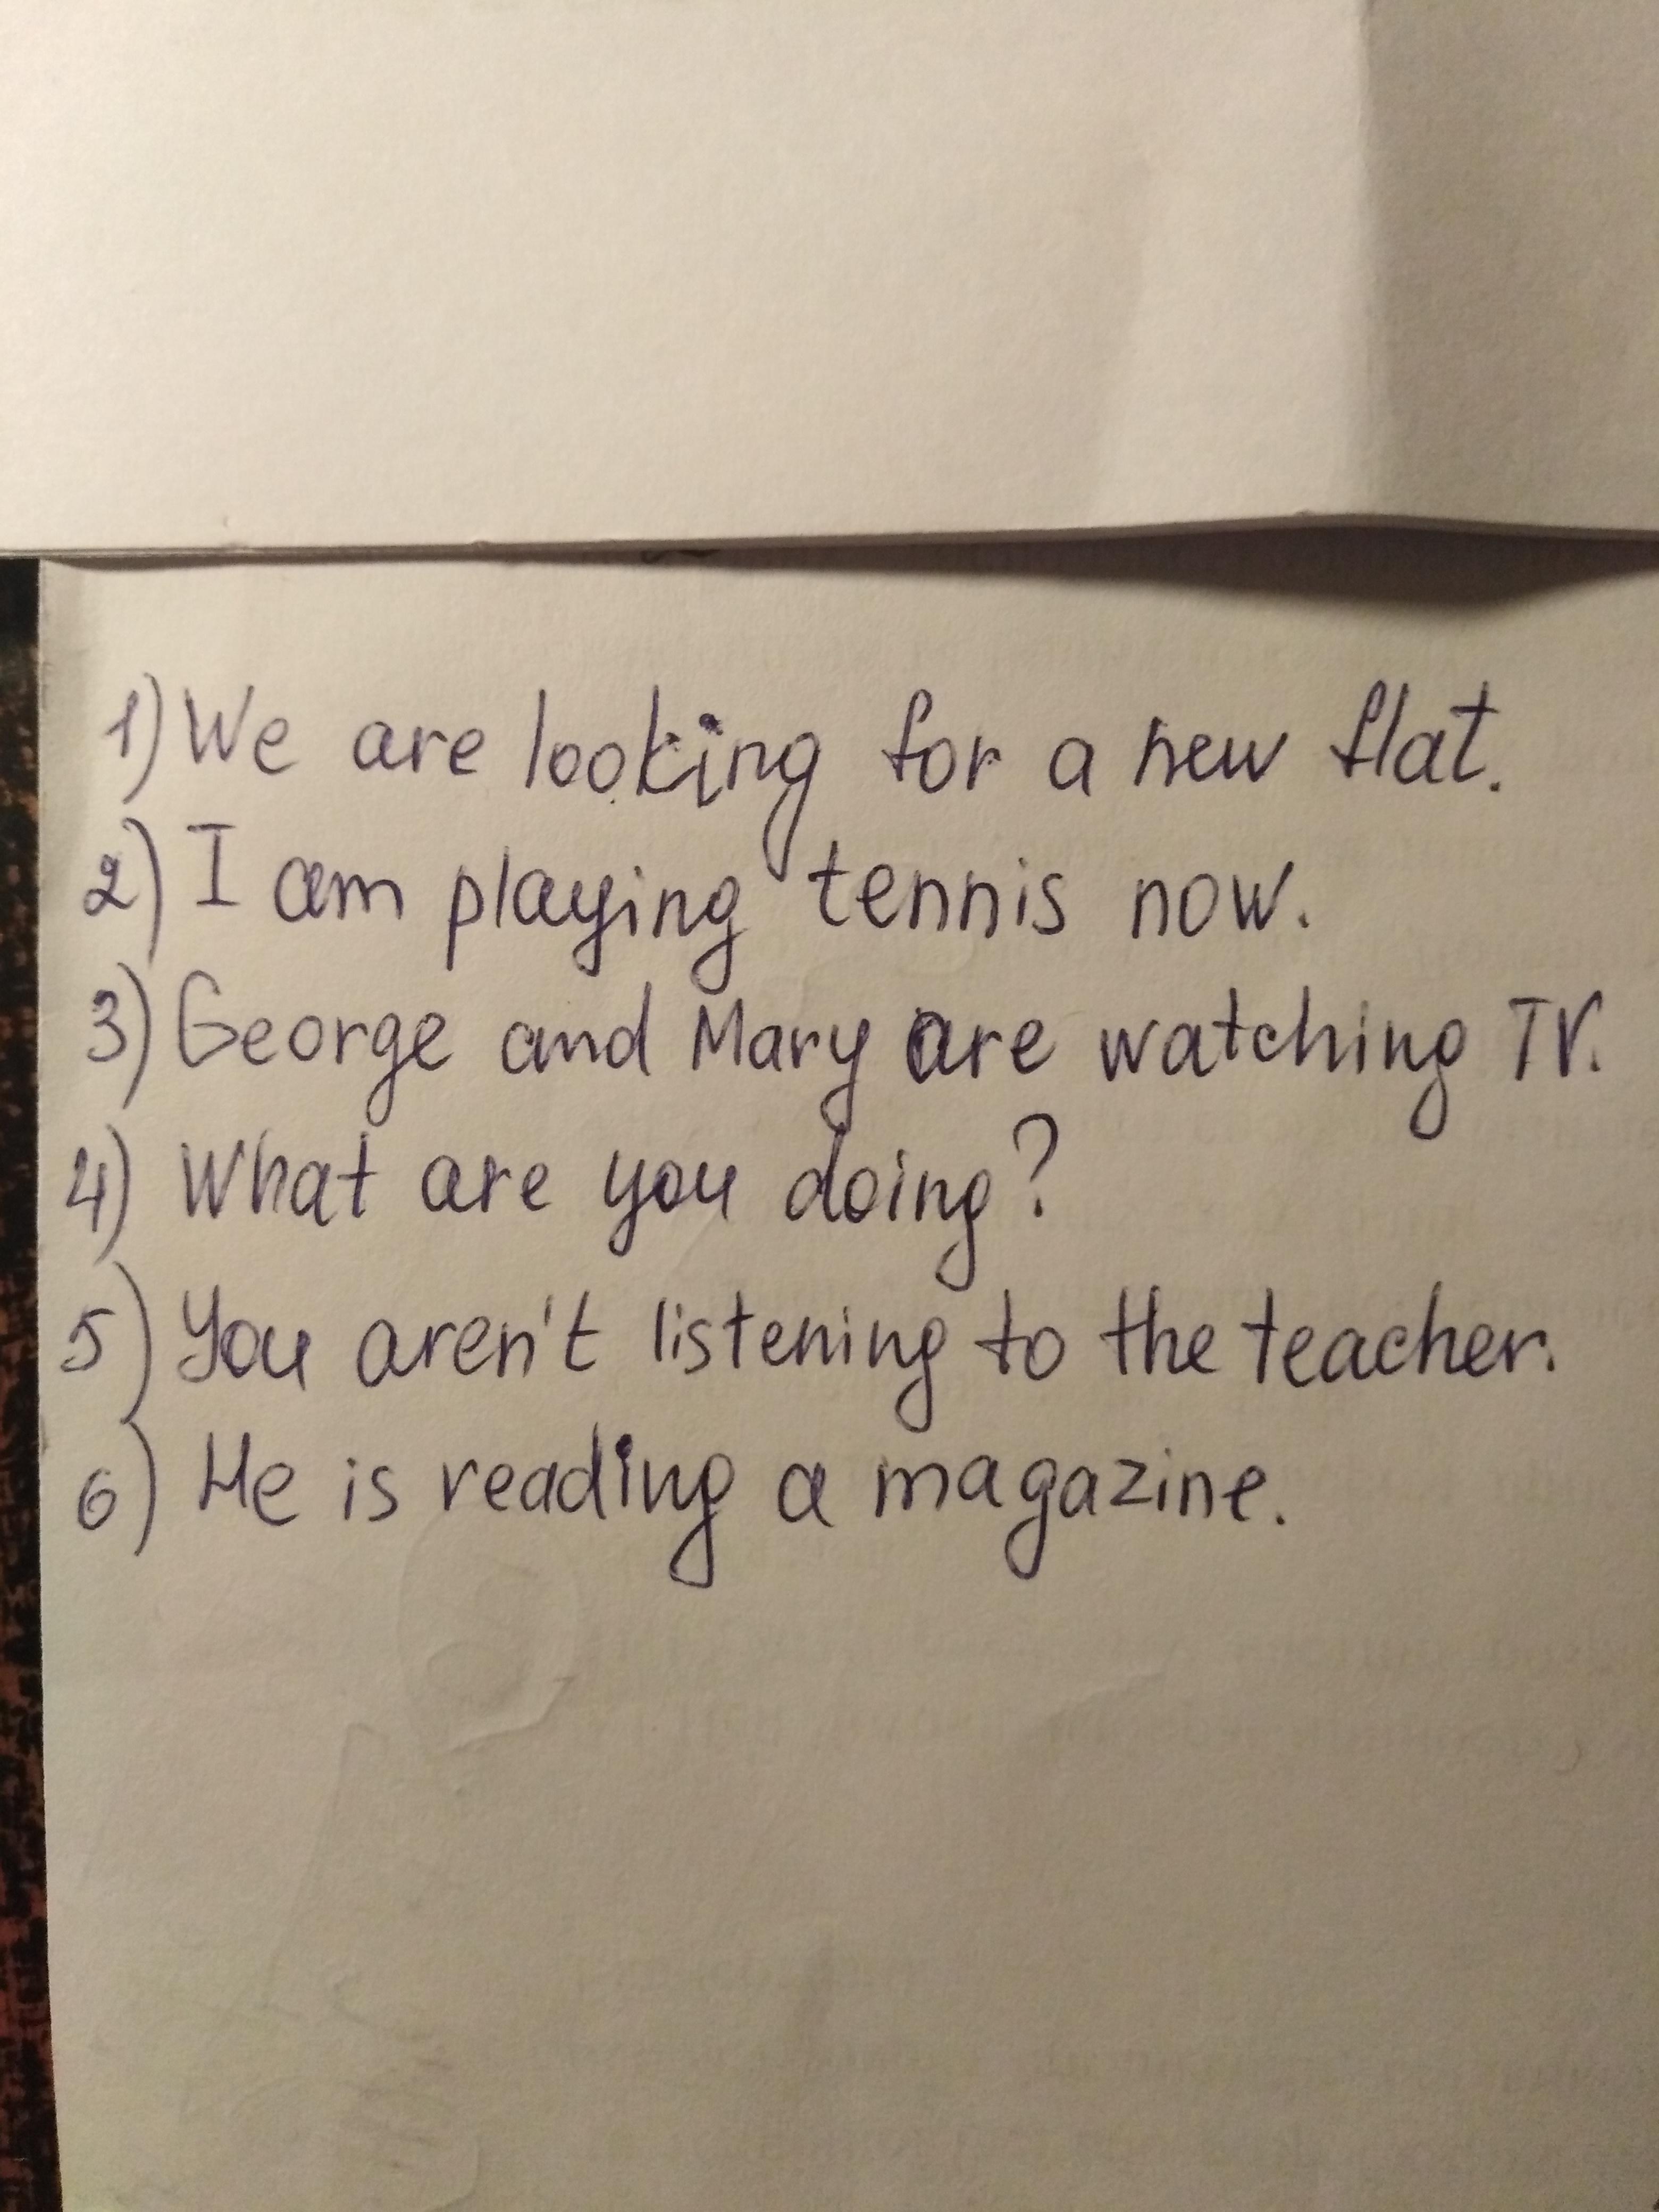 1) We are looking for a new flat.
2) I am playing tennis now.
3) George and Mary are watching TV.
4) What are you doing?
5) You aren't listening to the teacher.
6) He is reading a magazine.